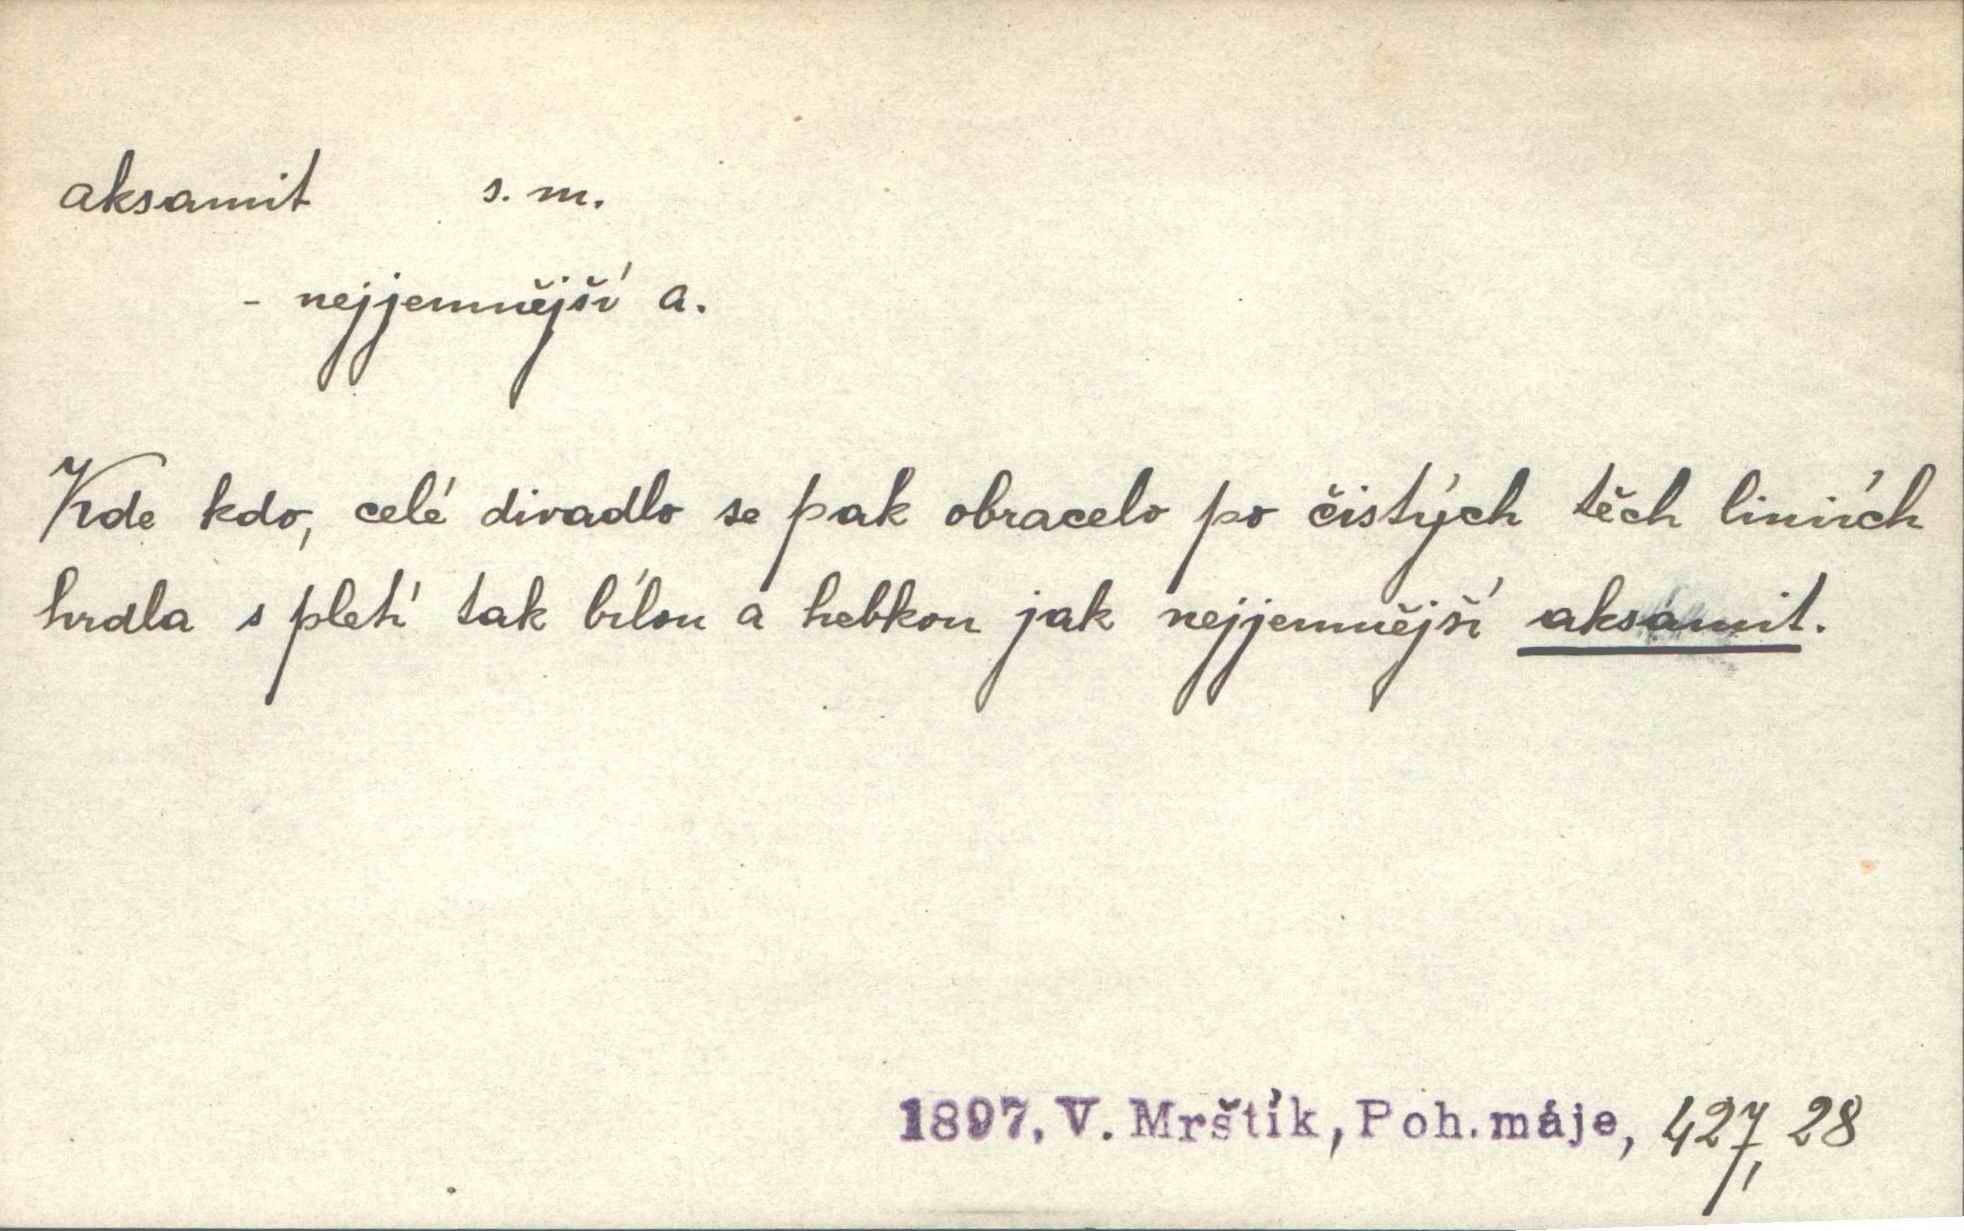 aksamit s. m.
- nejjemnější a.
Kde kdo, celé divadlo se pak obracelo po čistých těch liniích
hrdla s pletí tak bílou a hebkou jak nejjemnější aksamit.
1897, V. Mrštík, Poh. máje, 427, 28